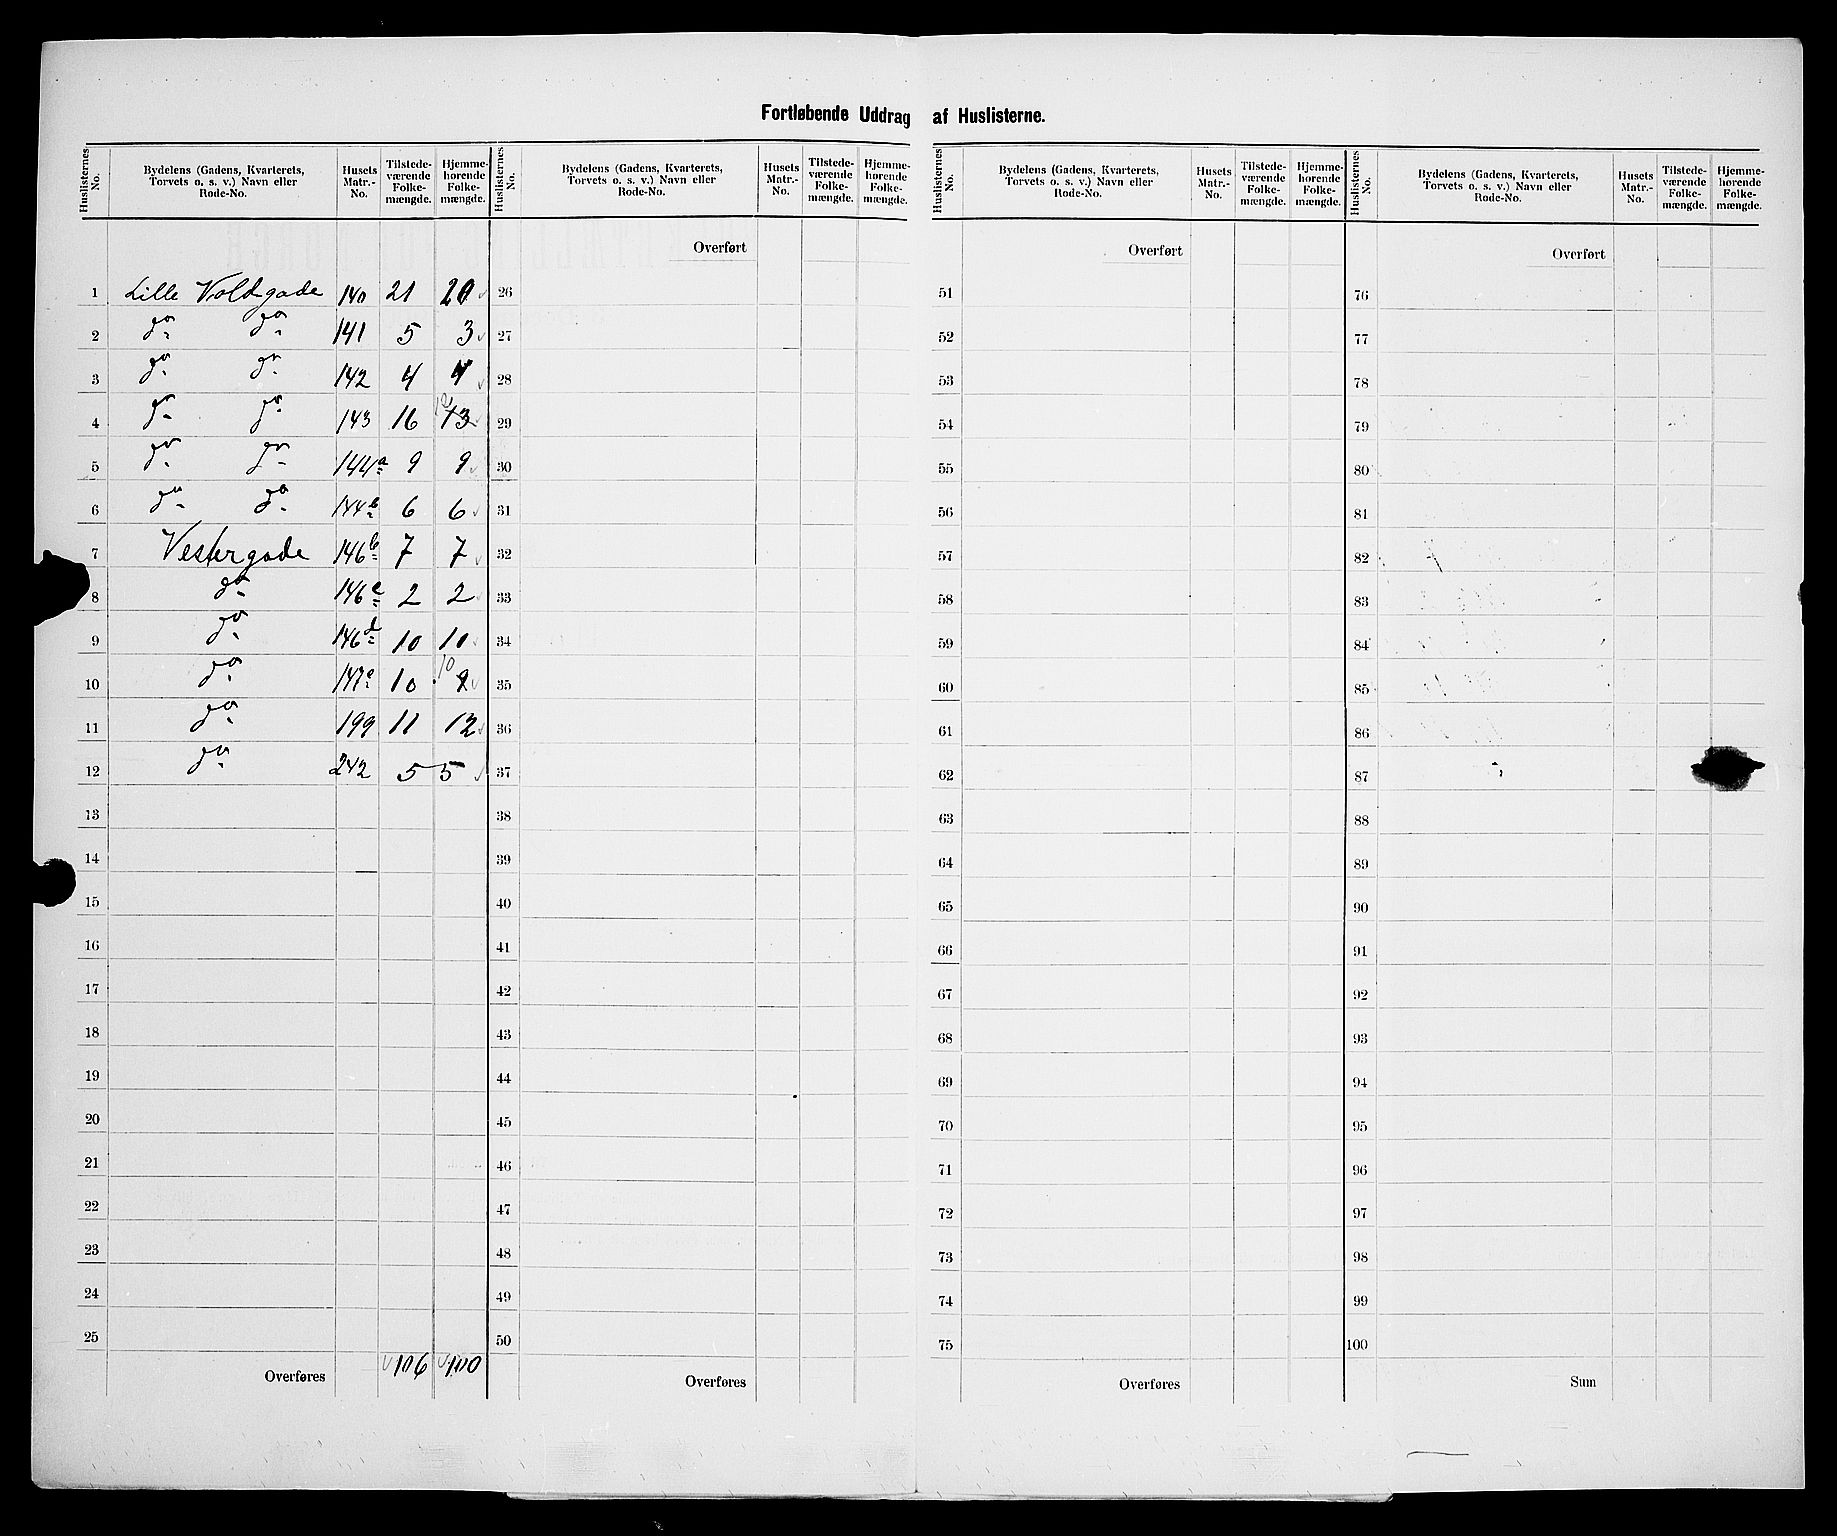 Fortløbende Uddrag af Huslisterne.
Huslisternes No. Bydelens (Gadens, Kvarterets, Torvets o. s. v.) Navn eller Rode-No. Husets Matr.-No. Tilstedeværende Folkemængde. Hjemmehørende Folkemængde.
1 Lille Voldgade 140 21 20
2 do do 141 5 3
3 do do 142 4 4
4 do do 143 16 12 13
5 do do 144a 9 9
6 do do 144b 6 6
7 Vestergade 146b 7 7
8 do 146c 2 2
9 do 146d 10 10
10 do 147a 10 10 9
11 do 199 11 12
12 do 242 5 5
13
14
15
16
17
18
19
20
21
22
23
24
25
Overføres 106 100
Huslisternes No. Bydelens (Gadens, Kvarterets, Torvets o. s. v.) Navn eller Rode-No. Husets Matr.-No. Tilstedeværende Folkemængde. Hjemmehørende Folkemængde.
Overført
26
27
28
29
30
31
32
33
34
35
36
37
38
39
40
41
42
43
44
45
46
47
48
49
50
Overføres
Huslisternes No. Bydelens (Gadens, Kvarterets, Torvets o. s. v.) Navn eller Rode-No. Husets Matr.-No. Tilstedeværende Folkemængde. Hjemmehørende Folkemængde.
Overført
51
52
53
54
55
56
57
58
59
60
61
62
63
64
65
66
67
68
69
70
71
72
73
74
75
Overføres
Huslisternes No. Bydelens (Gadens, Kvarterets, Torvets o. s. v.) Navn eller Rode-No. Husets Matr.-No. Tilstedeværende Folkemængde. Hjemmehørende Folkemængde.
Overført
76
77
78
79
80
81
82
83
84
85
86
87
88
89
90
91
92
93
94
95
96
97
98
99
100
Sum